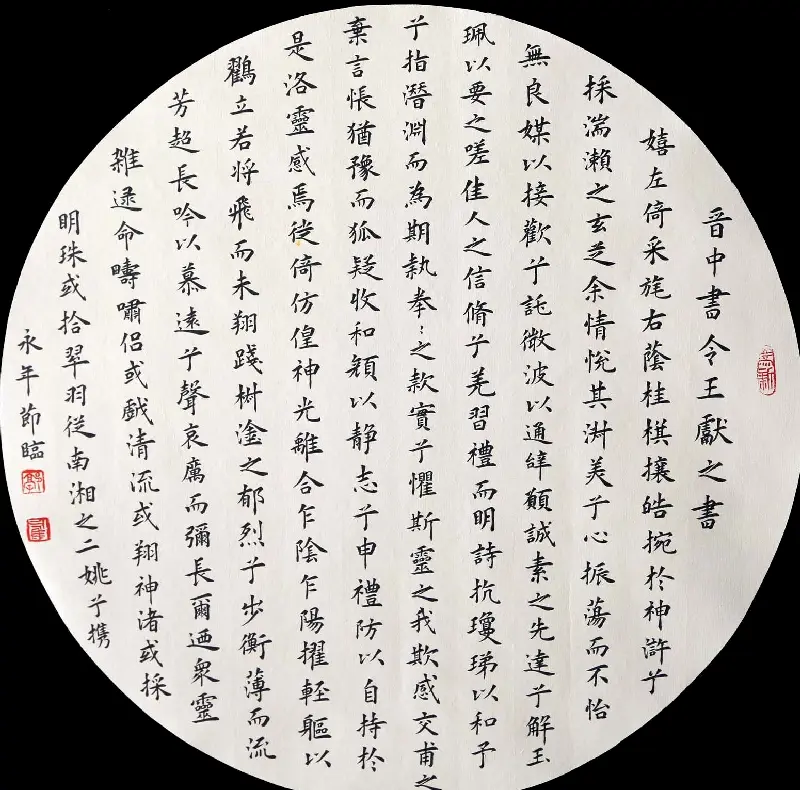 晉中書令王獻之書
嬉左倚采旄右蔭桂棋攘皓捥於神滸兮
採湍瀨之玄芝余情悅其淑美兮心振蕩而不怡
無良媒以接歡兮託微波以通辭願誠素之先達兮解玉
珮以要之嗟佳人之信脩兮羌習禮而明詩抗瓊珶以和予
兮指潛淵而為期執拳〻之款實兮懼斯靈之我欺感交甫之
棄言悵猶豫而狐疑收和顏以静志兮申禮防以自持於
是洛靈感焉徙倚仿偟神光離合乍陰乍陽擢輊軀以
鸐立若将飛而未翔踐樹塗之郁烈兮步衡薄而流
芳超長吟以慕遠兮聲哀厲而彌長爾迺衆靈
雑遝命疇嘯侣或戲清流或翔神渚或採
明珠或拾翠羽從南湘之二姚兮攜
永年節臨